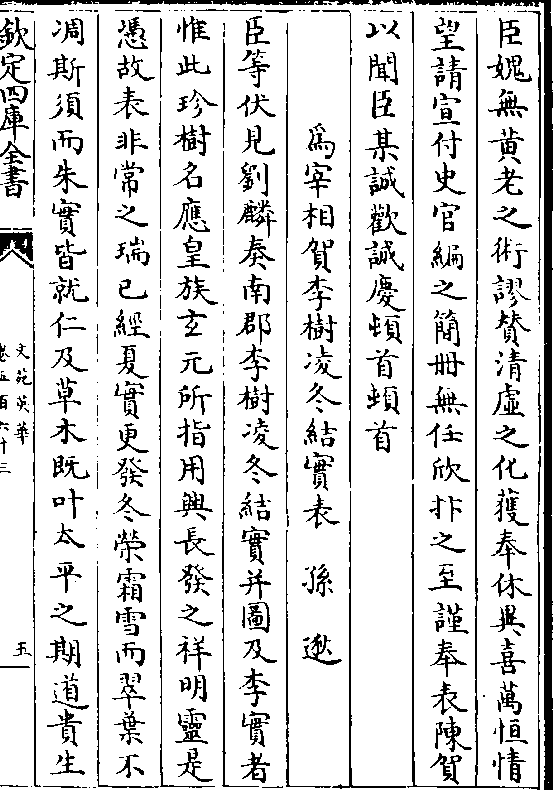 臣媿無黄老之術謬賛清虚之化獲奉休異喜萬恒情
望請宣付史官編之簡冊無任欣抃之至謹奉表陳賀
以聞臣某誠歡誠慶頓首頓首
爲宰相賀李樹凌冬結實表　孫逖
臣等伏見劉麟奏南郡李樹凌冬結實并圖及李實者
惟此珍樹名應皇族玄元所指用興長發之祥明靈是
憑故表非常之瑞已經夏實更發冬榮霜雪而翠葉不
凋斯須而朱實皆就仁及草木既叶太平之期道貴生
欽定四庫全書
文苑英華
卷五百六十三
五